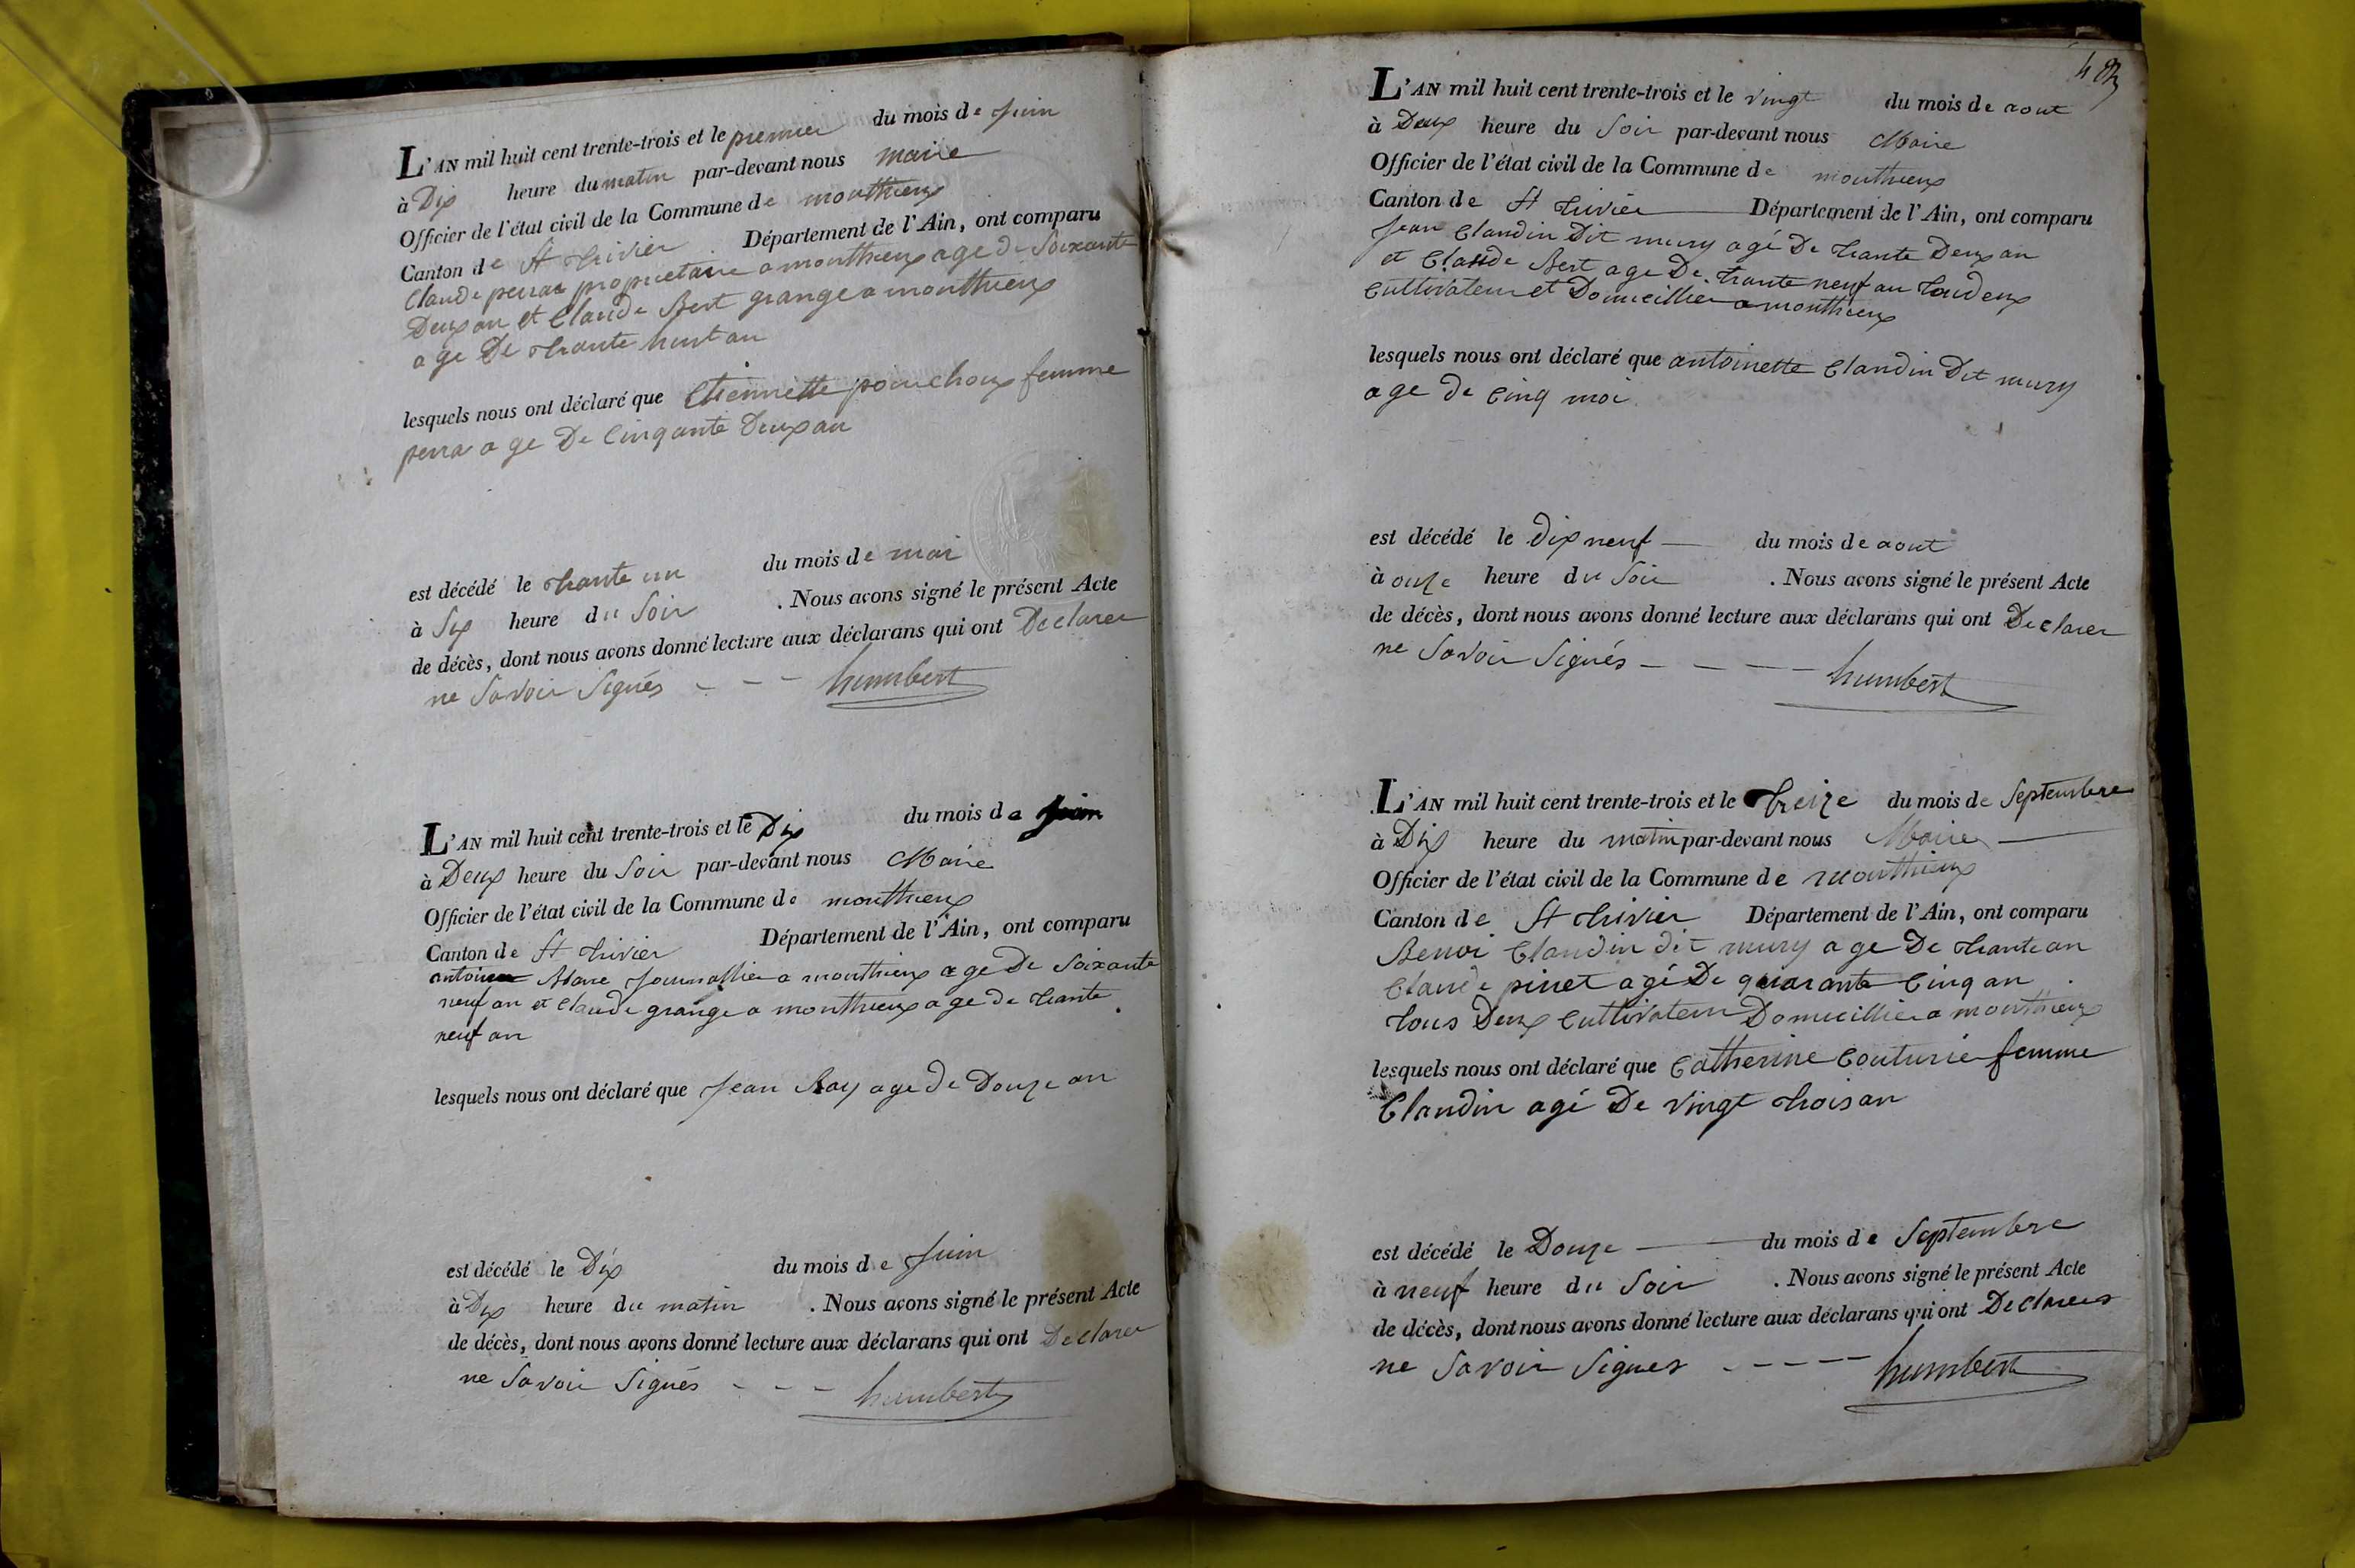 L'AN mil huit cent trente-trois et le premier du mois de Juin
à Dix heure du matin par-devant nous maire
Officier de l'état civil de la Commune de monthieux
Canton de St trivier Département de l'Ain, ont comparu
Claude perra propriétaire a monthieux age de Soixante
Deux an et Claude Bert granger a monthieux
age De trante huit an
lesquels nous ont déclaré que Etiennette ponchoux femme
perra age De Cinqante Deux an
est décédé le trante un du mois de mai
à Six heure du Soir . Nous avons signé le présent Acte
de décès, dont nous avons donné lecture aux déclarans qui ont Declarer
ne Savoir Signés - - - humbert
L'AN mil huit cent trente-trois et le Dix du mois de Juin
à Deux heure du Soir par-devant nous Maire
Officier de l'état civil de la Commune de monthieux
Canton de St trivier Département de l'Ain, ont comparu
antoine journallier a monthieux age De Soixante
neuf an et Claude grange a monthieux age de trante
neuf an
lesquels nous ont déclaré que Jean Ray age de Douze an
est décédé le Dix du mois de Juin
à Dix heure du matin . Nous avons signé le présent Acte
de décès, dont nous avons donné lecture aux déclarans qui ont Declarer
ne Savoir Signés - - - humbert
L'AN mil huit cent trente-trois et le vingt du mois de aout
à Deux heure du Soir par-devant nous Maire
Officier de l'état civil de la Commune de monthieux
Canton de St trivier Département de l'Ain, ont comparu
Jean Claudin Dit mury agé De trante Deux an
et Claude Bert age De trante neuf an toudeux
Cultivateur et Domicillier a monthieux
lesquels nous ont déclaré que antoinette Claudin Dit mury
age de Cinq moi
est décédé le Dix neuf du mois de aout
à onze heure du Soir . Nous avons signé le présent Acte
de décès, dont nous avons donné lecture aux déclarans qui ont Declarer
ne Savoir Signés - - - - humbert
L'AN mil huit cent trente-trois et le Treize du mois de Septembre
à Dix heure du matin par-devant nous Maire
Officier de l'état civil de la Commune de monthieux
Canton de St trivier Département de l'Ain, ont comparu
Benoi Claudin dit mury age De trante an
Claude pinet agé De quarante Cinq an
tous Deux Cultivateur Domicillier a monthieux
lesquels nous ont déclaré que Catherine Couturie femme
Claudin agé De vingt trois an
est décédé le Douze du mois de Septembre
à neuf heure du Soir . Nous avons signé le présent Acte
de décès, dont nous avons donné lecture aux déclarans qui ont Declarer
ne Savoir Signer - - - - humbert